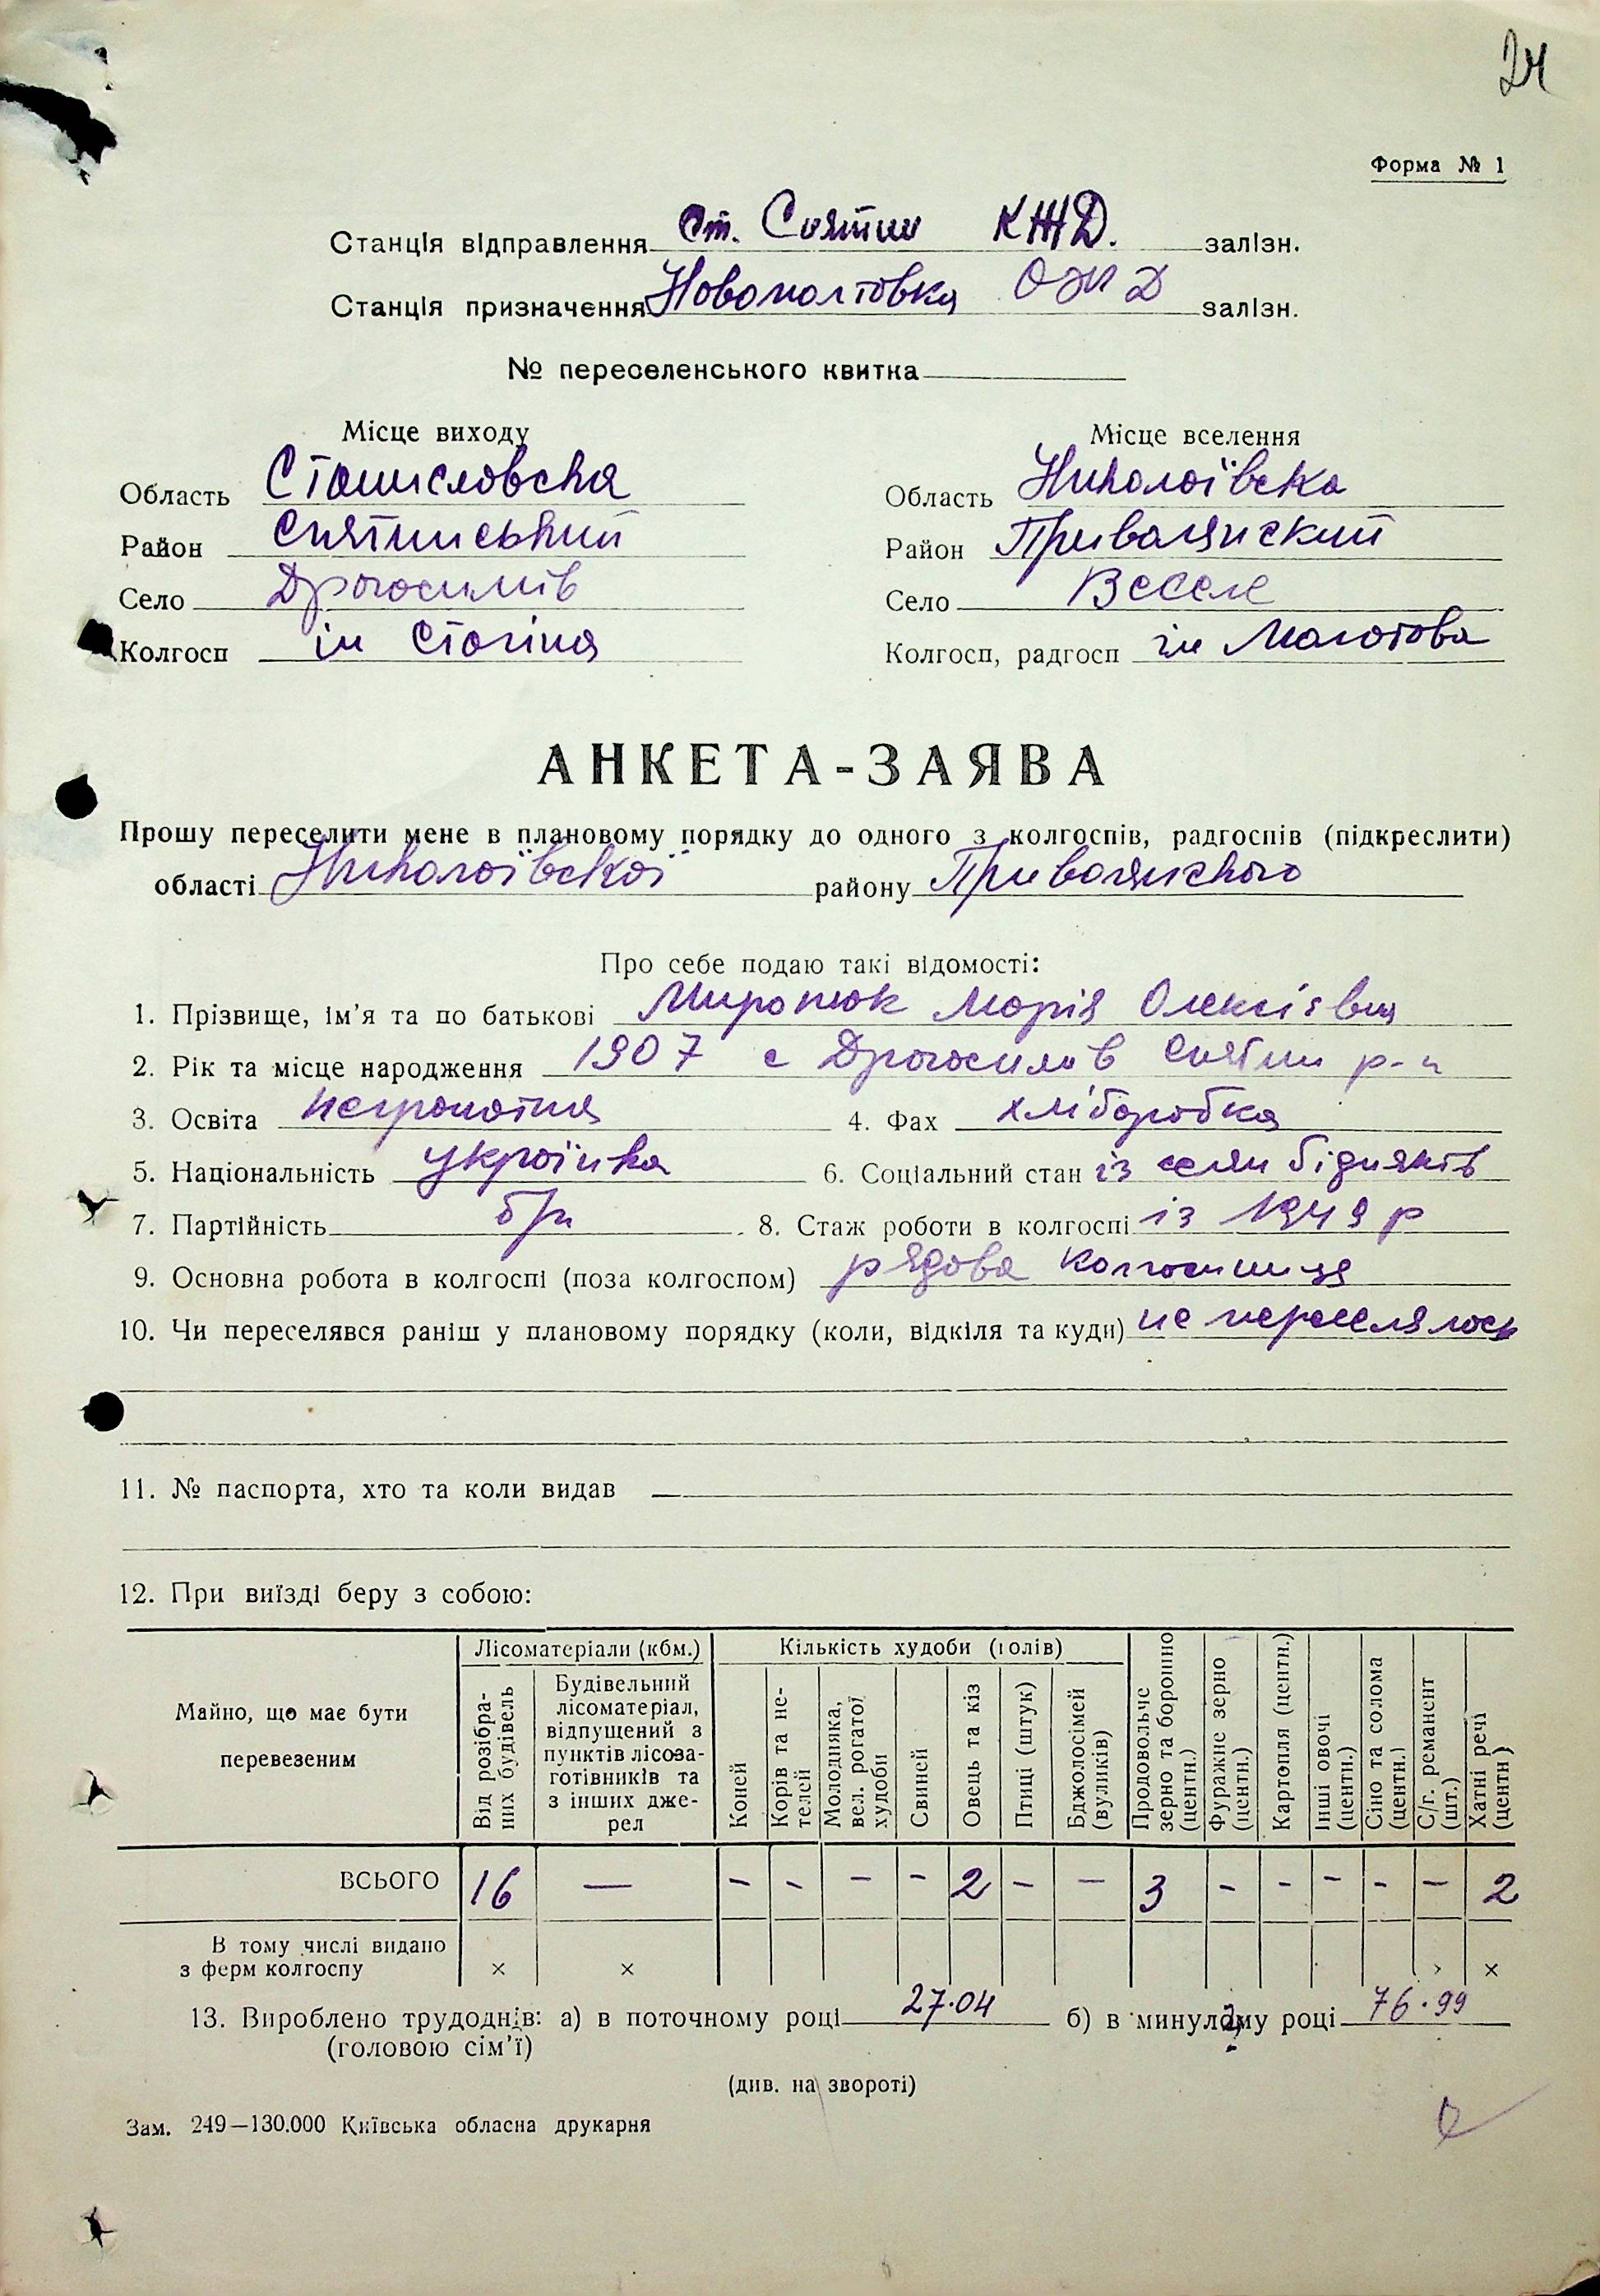 24
Форма № 1
Станція відправлення Ст. Снятин КЖД. залізн.
Станція призначення Новополтовка ОЖД залізн.
№ переселенського квитка
Місце виходу
Область Станиславська
Район Снятинський
Село Драгасимів
Колгосп ім Сталіна
Місце вселення
Область Николаївска
Район Привалянский
Село Веселе
Колгосп, радгосп ім Молотова
АНКЕТА-ЗАЯВА
Прошу переселити мене в плановому порядку до одного з колгоспів, радгоспів (підкреслити)
області Николаївскої району Привалянского
Про себе подаю такі відомості:
1. Прізвище, ім'я та по батькові Миронюк Марія Олексіївна
2. Рік та місце народження 1907 с Драгасимів Снятин р-н
3. Освіта неграмотна 4. Фах хліборобка
5. Національність українка 6. Соціальний стан із селян бідняків
7. Партійність б/п 8. Стаж роботи в колгоспі із 1949 р
9. Основна робота в колгоспі (поза колгоспом) рядова колгоспниця
10. Чи переселявся раніш у плановому порядку (коли, відкіля та куди) не переселялась
11. № паспорта, хто та коли видав
12. При виїзді беру з собою:
Майно, що має бути перевезеним
Лісоматеріали (кбм.)
Від розібраних будівель
Будівельний лісоматеріал, відпущений з пунктів лісозаготівників та з інших джерел
Кількість худоби (голів)
Коней
Корів та нетелей
Молодняка, вел. рогатої худоби
Свиней
Овець та кіз
Птиці (штук)
Бджолосімей (вуликів)
Продовольче зерно та борошно (центн.)
Фуражне зерно (центн.)
Картопля (центн.)
Інші овочі (центн.)
Сіно та солома (центн.)
С/г. реманент (шт.)
Хатні речі (центн)
ВСЬОГО 16 — - - - - 2 - - 3 - - - - - 2
В тому числі видано з ферм колгоспу × × ×
13. Вироблено трудоднів: а) в поточному році 27.04 б) в минулому році 76.99
(головою сім'ї)
(див. на звороті)
Зам. 249—130.000 Київська обласна друкарня